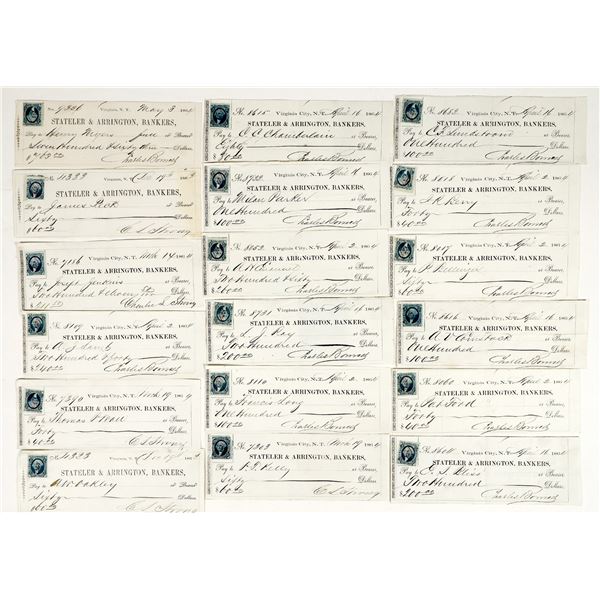 No. 9321 Virginia, N.T. May 3 1864
STATELER & ARRINGTON, BANKERS,
Pay to Henry Myers or Bearer
Seven Hundred Dollars
Charles Bonner
No. 4333 Virginia, N.T. 1863
STATELER & ARRINGTON, BANKERS,
Pay to James Peck or Bearer
Sixty Dollars
$60.00 C. L. Strong
Virginia City, N.T. Mch 14 1864
STATELER & ARRINGTON, BANKERS,
Pay to Jos. Jenkins or Bearer
Two Hundred Eleven Dollars
Charles L Strong
No. 8109 Virginia City, N.T. April 2 1864
STATELER & ARRINGTON, BANKERS,
Pay to or Bearer
Two Hundred Forty Dollars
$240.00 Charles Bonner
No. 7340 Virginia City, N.T. Mch 19 1864
STATELER & ARRINGTON, BANKERS,
Pay to Thomas or Bearer
Forty Dollars
$40.00 C L Strong
No. 4323 Virginia, N.T. 1863
STATELER & ARRINGTON, BANKERS,
Pay to Oakley or Bearer
Sixty Dollars
$60.00 C. L. Strong
No. 1615 Virginia City, N.T. April 16 1864
STATELER & ARRINGTON, BANKERS,
Pay to C C Chamberlain or Bearer,
Eighty Dollars,
$80.00 Charles Bonner
No. Virginia City, N.T. April 1864
STATELER & ARRINGTON, BANKERS,
Pay to Parker or Bearer,
One Hundred Dollars,
$100.00 Charles Bonner
No. 8082 Virginia City, N.T. April 2 1864
STATELER & ARRINGTON, BANKERS,
Pay to or Bearer,
Two Hundred Sixty Dollars,
$260.00 Charles Bonner
No. 8721 Virginia City, N.T. April 16 1864
STATELER & ARRINGTON, BANKERS,
Pay to L. J. Kay or Bearer,
Two Hundred Dollars,
$200.00 Charles Bonner
No. 8110 Virginia City, N.T. April 2 1864
STATELER & ARRINGTON, BANKERS,
Pay to Francis Long or Bearer,
One Hundred Dollars,
$100.00 Charles Bonner
No. 7303 Virginia City, N.T. Mch 19 1864
STATELER & ARRINGTON, BANKERS,
Pay to Kelly or Bearer,
Sixty Dollars,
$60.00 C L Strong
No. 1652 Virginia City, N.T. April 16 1864
STATELER & ARRINGTON, BANKERS,
Pay to or Bearer,
One Hundred Dollars,
$100.00 Charles Bonner
No. 8018 Virginia City, N.T. April 2 1864
STATELER & ARRINGTON, BANKERS,
Pay to Kerry or Bearer,
Forty Dollars,
$40.00 Charles Bonner
No. 8017 Virginia City, N.T. April 2 1864
STATELER & ARRINGTON, BANKERS,
Pay to or Bearer,
Sixty Dollars,
$60.00 Charles Bonner
No. 1616 Virginia City, N.T. April 16 1864
STATELER & ARRINGTON, BANKERS,
Pay to A V Comstock or Bearer,
One Hundred Dollars,
$100.00 Charles Bonner
No. 8060 Virginia City, N.T. April 2 1864
STATELER & ARRINGTON, BANKERS,
Pay to Pat Ford or Bearer,
Forty Dollars,
$40.00 Charles Bonner
No. 8604 Virginia City, N.T. April 16 1864
STATELER & ARRINGTON, BANKERS,
Pay to E. S. Bliss or Bearer,
Two Hundred Dollars,
$200.00 Charles Bonner